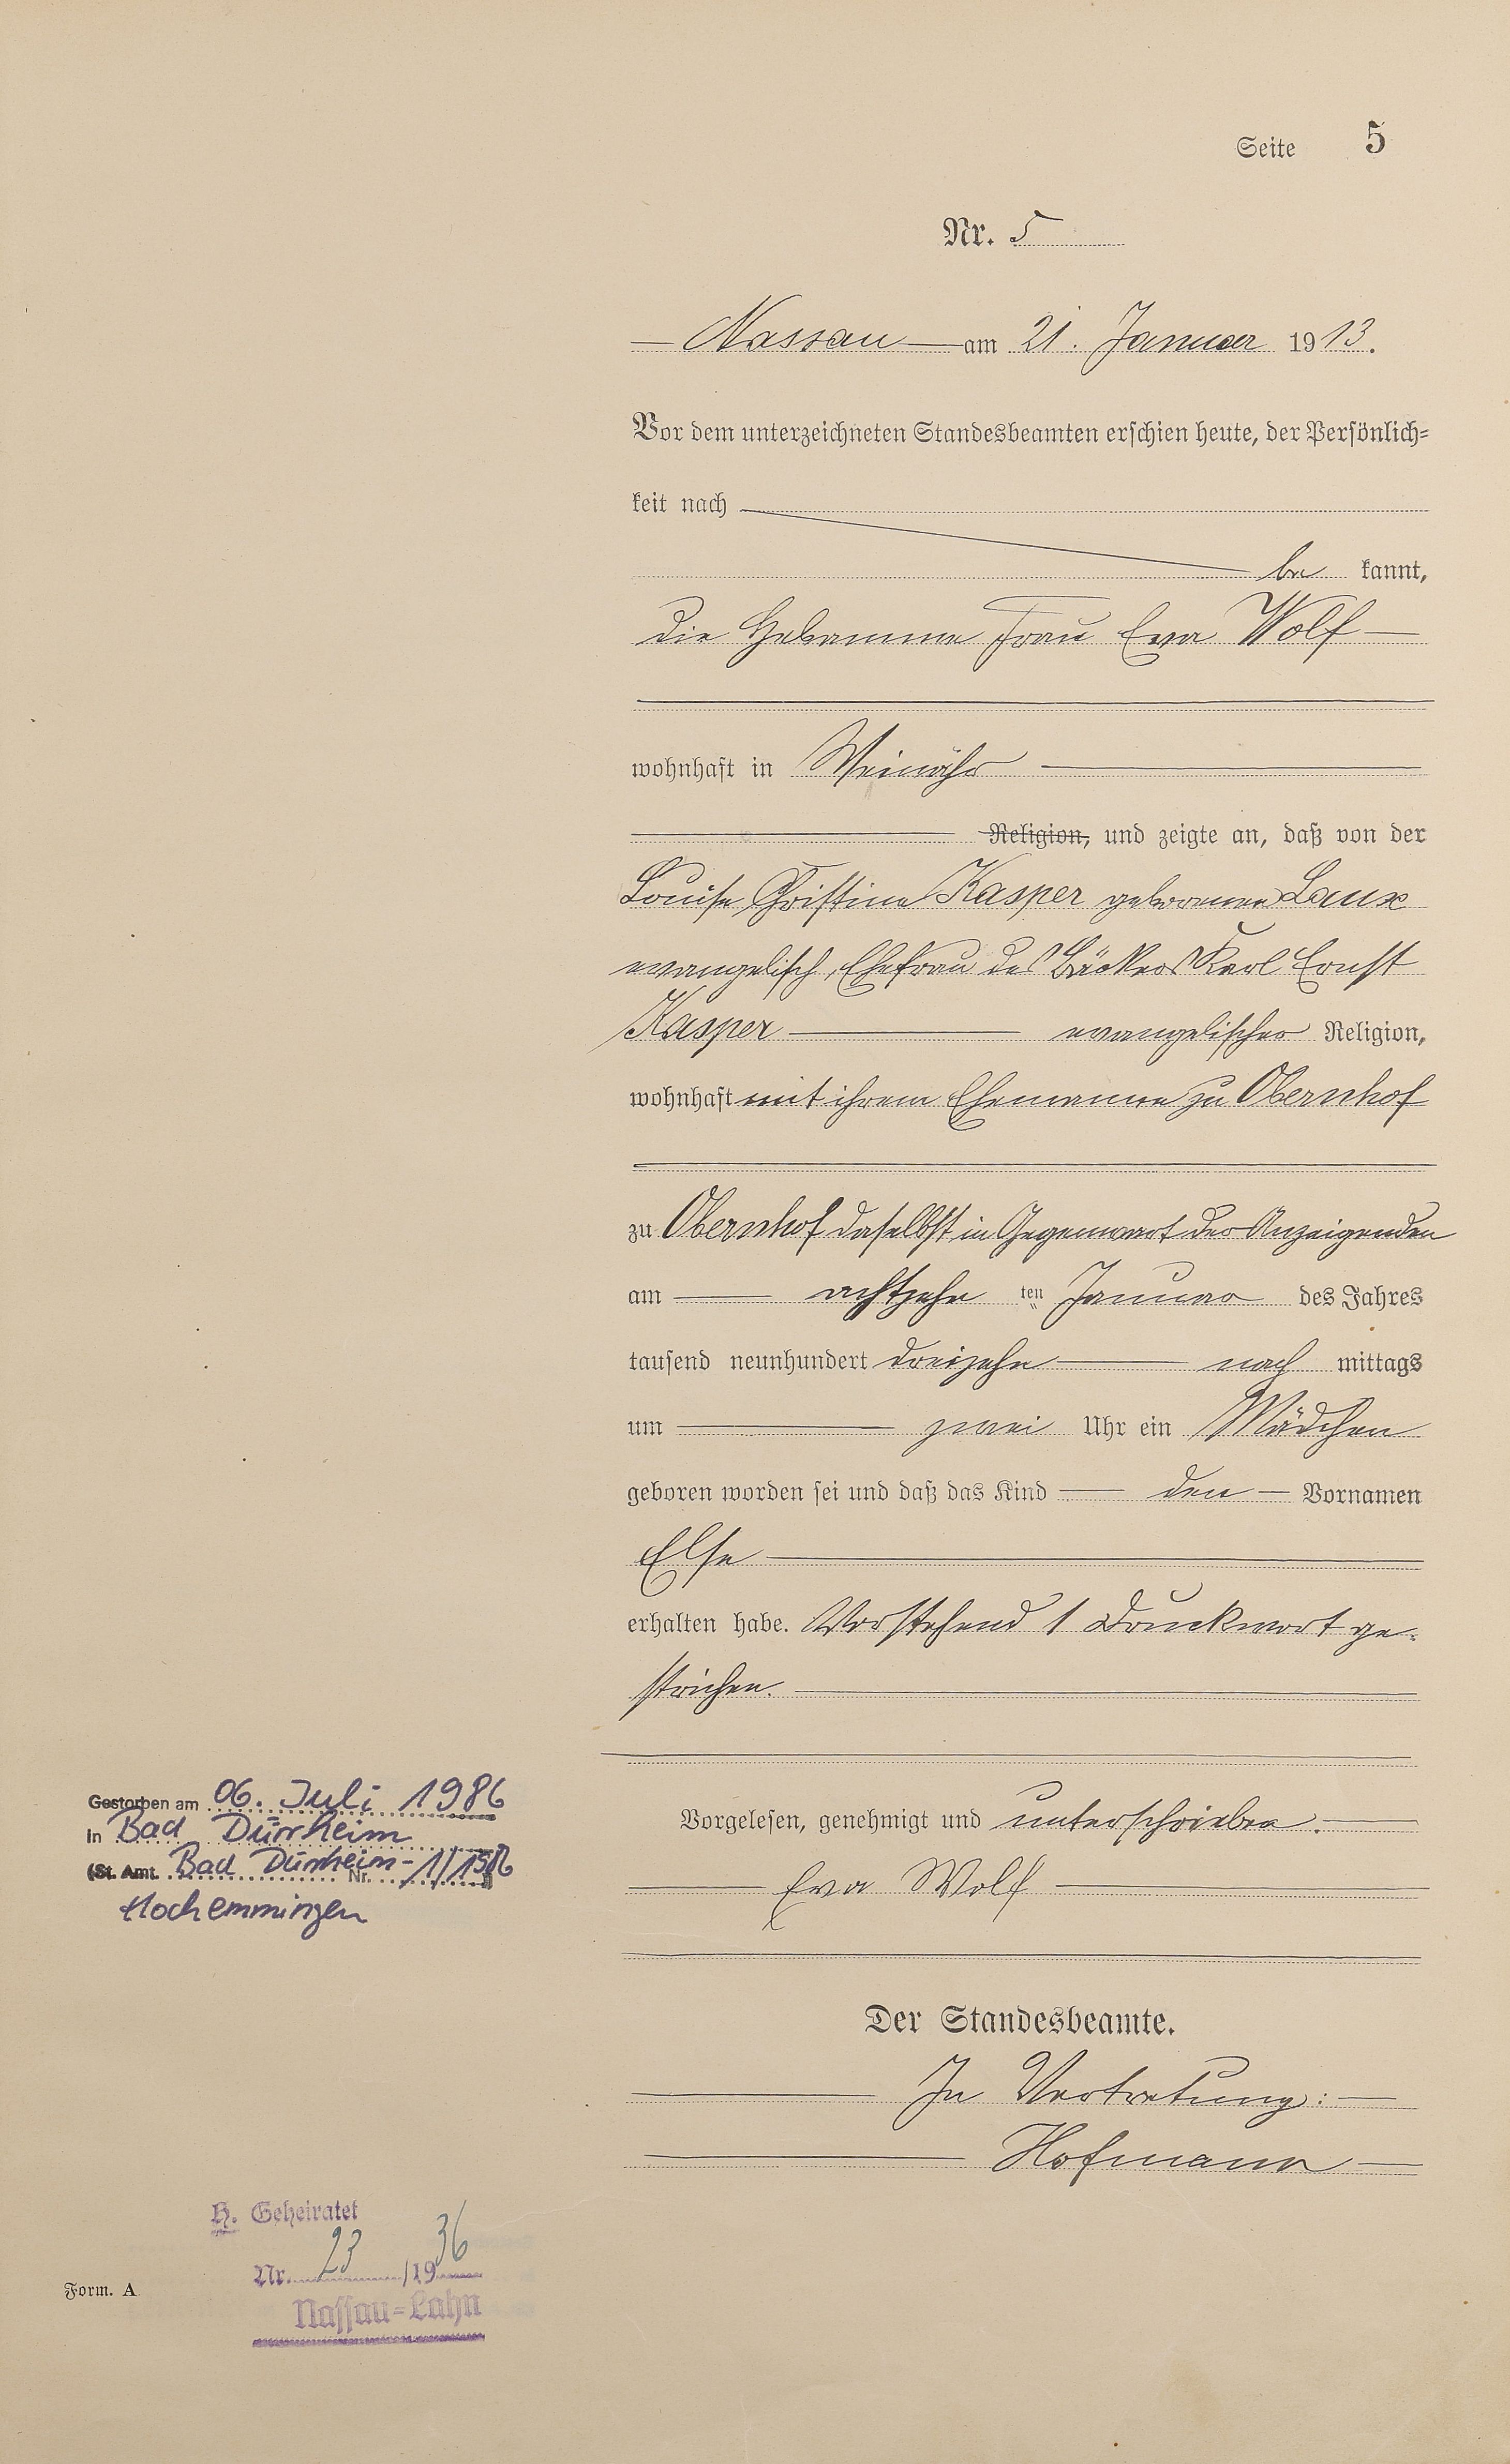 Seite 5
Nr. 5
Nassau am 21. Januar 1913.
Vor dem unterzeichneten Standesbeamten erschien heute, der Persönlich-
keit nach
be kannt,
die Hebamme Frau Eva Wolf
wohnhaft in Weinähr
Religion, und zeigte an, daß von der
Louise Christine Kasper geborenen Laux
evangelisch, Ehefrau des Bäckers Karl Ernst
Kasper evangelischer Religion,
wohnhaft mit ihrem Ehemanne zu Obernhof
zu Obernhof daselbst in Gegenwart der Anzeigenden
am achtzehn ten Januar des Jahres
tausend neunhundert dreizehn nach mittags
um zwei Uhr ein Mädchen
geboren worden sei und daß das Kind den Vornamen
Else
erhalten habe. Vorstehend 1 Druckwort ge-
strichen.
Vorgelesen, genehmigt und unterschrieben.
Eva Wolf
Der Standesbeamte.
In Vertretung:
Hofmann
Gestorben am 06. Juli 1986
in Bad Dürrheim
(St. Amt Bad Dürrheim- Nr. 1/1986)
Hochemmingen
H. Geheiratet
Nr. 23 /1936
Nassau-Lahn
Form. A